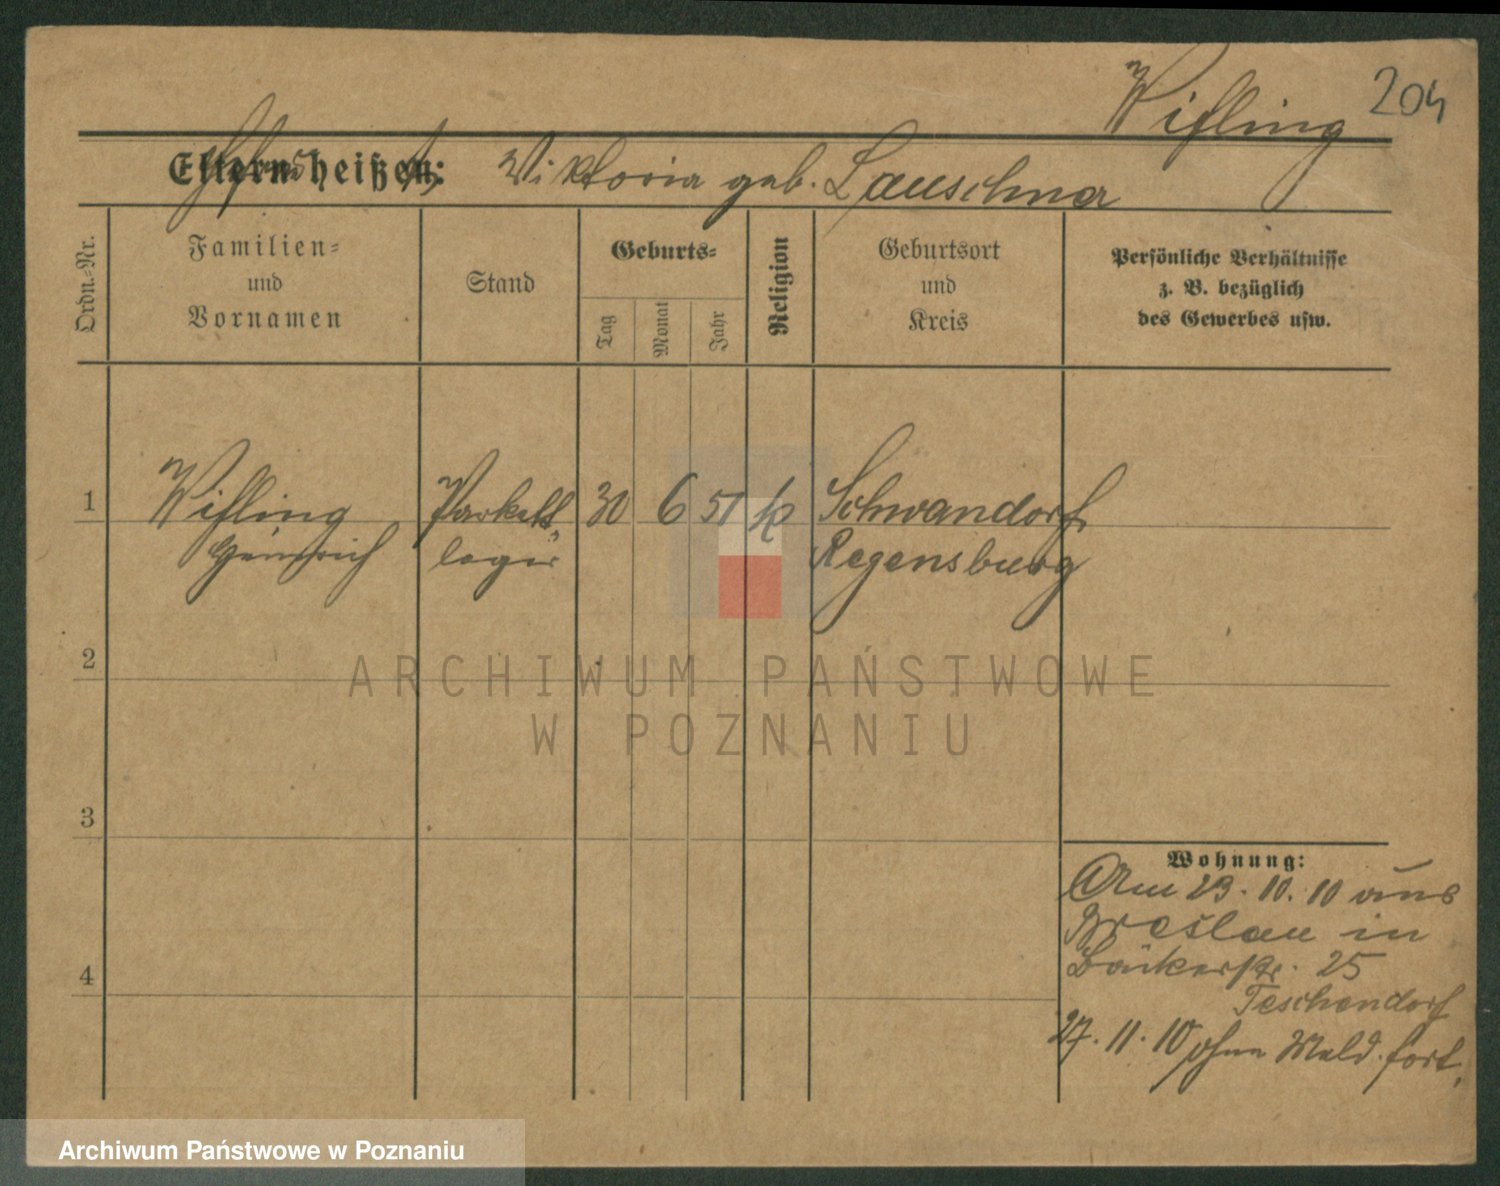 Wifling 204
Eltern heißen: Viktoria geb. Lauschner
Ordn.-Nr.
Familien-
und
Vornamen
Stand
Geburts-
Tag
Monat
Jahr
Religion
Geburtsort
und
Kreis
Persönliche Verhältnisse
z. B. bezüglich
des Gewerbes usw.
1 Wifling Parkett- 30 6 51 k Schwandorf
Heinrich leger Regensburg
2
3
4
Wohnung:
Am 23.10.10 aus
Breslau in
Bäckerstr. 25
Teschendorf
27.11.10 ohne Meld. fort.
ARCHIWUM PAŃSTWOWE
W POZNANIU
Archiwum Państwowe w Poznaniu